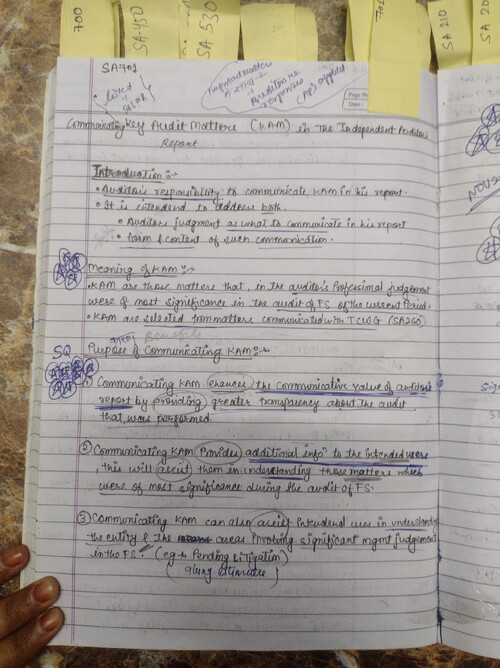 700
SA-450
SA 530
701
SA 210
SA 20
SA701
Listed
Important matters
Auditor's
responses
(AP) applied
Page No.
Date:
Communicating Key Audit Matters (KAM) in The Independent Auditor's
Report
Introduction :-
• Auditor's responsibility to communicate KAM in his report.
• It is intended to address both
• Auditors judgment as what to communicate in his report
• form & content of such communication.
Meaning of KAM :-
• KAM are those matters that, in the auditor's Professional judgement
were of most significance in the audit of FS of the current Period.
• KAM are selected from matters communicated with TCWG (SA260)
NOV 2
SQ
Benefits
Purpose of Communicating KAM :-
① Communicating KAM ehances the communicative value of auditors
report by providing greater transparency about the audit
that were performed
② Communicating KAM Provides additional info to the intended users
this will assist them in understanding those matters which
were of most significance during the audit of FS.
③ Communicating KAM can also assist intended uses in understandg
the entity & the areas involving significant mgmt judgement
in the FS. (eg → Pending Litigation)